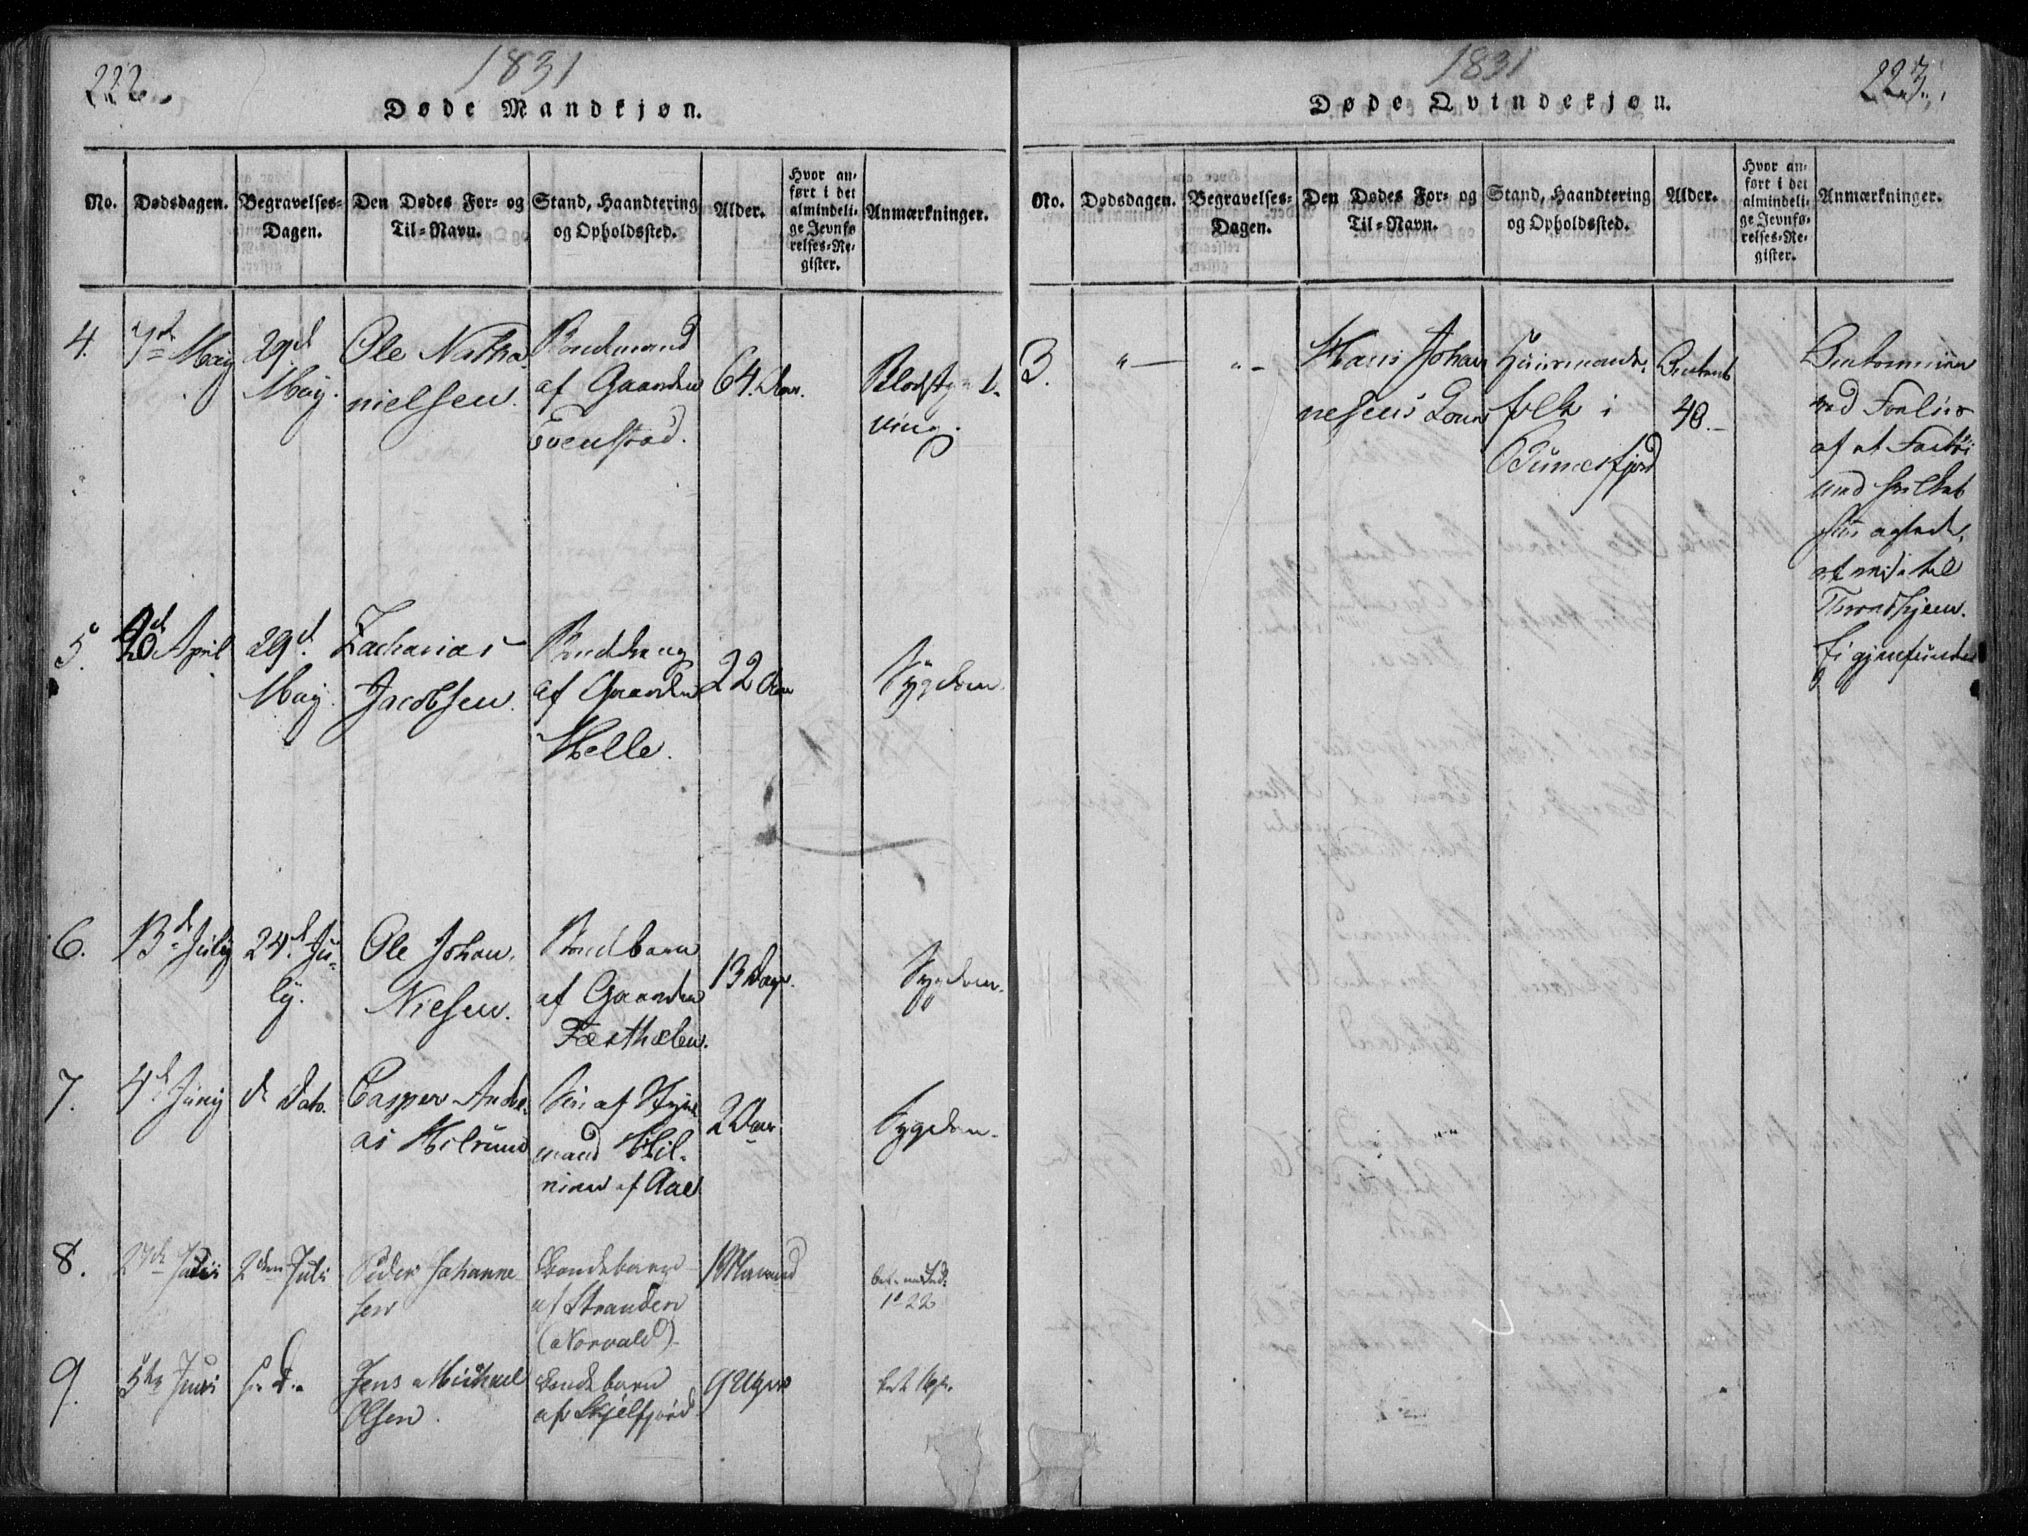 222.
1831
Døde Mandkjøn.
No.
Dødsdagen.
Begravelses-
Dagen.
Den Dødes For- og
Til-Navn.
Stand, Haandtering
og Opholdssted.
Alder.
Hvor an-
ført i det
almindeli-
ge Jevnfø
relses-Re-
gister.
Anmærkninger.
4.
7de May
29d
May.
Ole Natha
nielsen.
Bondmand
af Gaarden
Evenstad.
64 Aar.
Blodsty
ning.
5.
April
29d.
May.
Zacharias
Jacobsen.
af Gaarden
Melle.
22 Aar
Sygdom.
6.
13de July
24d. Ju-
ly.
Ole Johan
Nielsen.
Bondbarn
af Gaarden
13 Dage.
Sygdom.
7.
4de Juny
d. Dato.
Casper Andre-
as Hilrund
Søn af
mand
af Aae
2 Aar
Sygdom.
8.
27de
2den Juli
Peder Johanne
sen
Bondebarn
af Stranden
(Norvald)
1 Maaned
9.
5te Juni
Jens Michael
Olsen.
Bondebarn
af Skjelfjord
9 Uger
1831
223.
Døde Qvindekjøn.
No.
Dødsdagen.
Begravelses-
Dagen.
Den Dødes For- og
Til-Navn.
Stand, Haandtering
og Opholdssted.
Alder.
Hvor an-
ført i det
almindeli-
ge Jevnfø-
relses-Re-
gister.
Anmærkninger.
3.
" —
" -
Hans Johan
nesens Kone
Huusmands
folk i
Sunnesfjord
Omtrent
40.
Omkommen
ved Forliis
af et Fartøi
med hvilket
hun agtede
at reise til
Trondhjem.
Ei gjenfunden